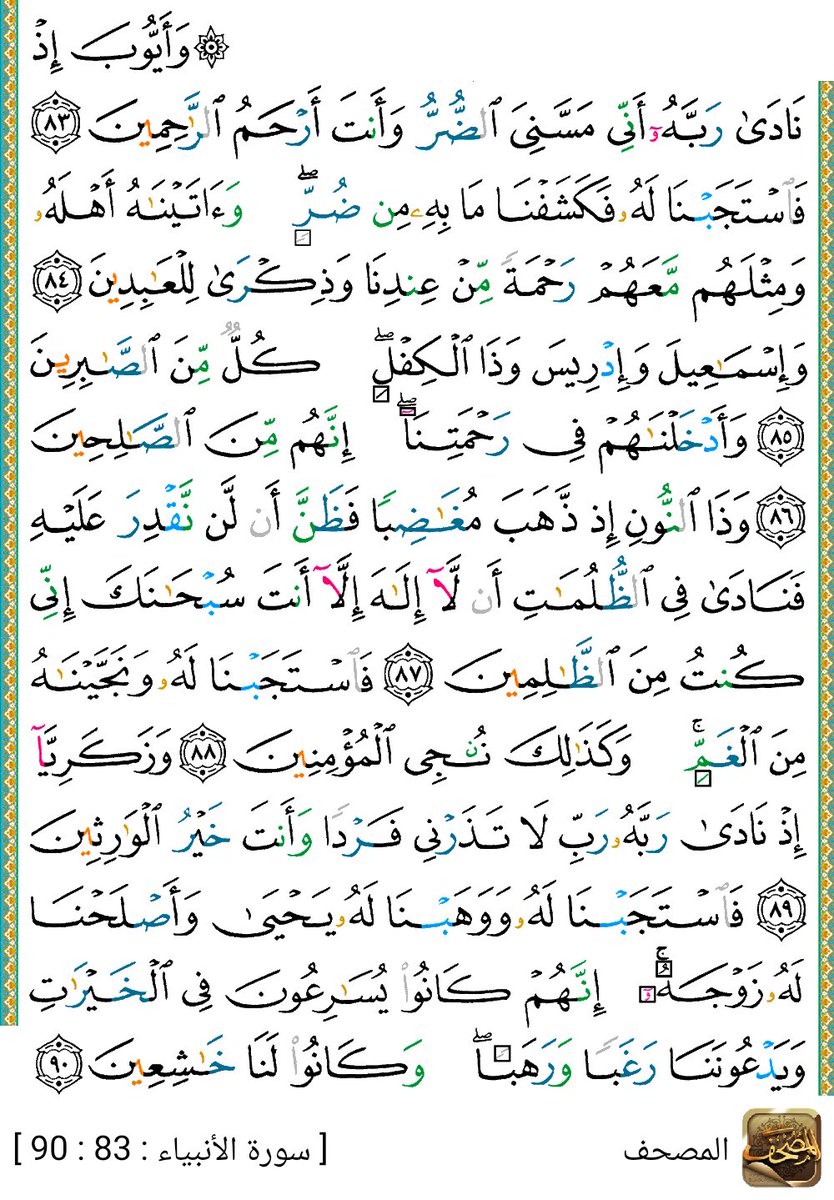 ۞ وَأَيُّوبَ إِذْ
نَادَىٰ رَبَّهُۥٓ أَنِّي مَسَّنِيَ ٱلضُّرُّ وَأَنتَ أَرْحَمُ ٱلرَّٰحِمِينَ ٨٣
فَٱسْتَجَبْنَا لَهُۥ فَكَشَفْنَا مَا بِهِۦ مِن ضُرّٖۖ وَءَاتَيْنَٰهُ أَهْلَهُۥ
وَمِثْلَهُم مَّعَهُمْ رَحْمَةٗ مِّنْ عِندِنَا وَذِكْرَىٰ لِلْعَٰبِدِينَ ٨٤
وَإِسْمَٰعِيلَ وَإِدْرِيسَ وَذَا ٱلْكِفْلِۖ كُلّٞ مِّنَ ٱلصَّٰبِرِينَ
٨٥ وَأَدْخَلْنَٰهُمْ فِي رَحْمَتِنَآۖ إِنَّهُم مِّنَ ٱلصَّٰلِحِينَ
٨٦ وَذَا ٱلنُّونِ إِذ ذَّهَبَ مُغَٰضِبٗا فَظَنَّ أَن لَّن نَّقْدِرَ عَلَيْهِ
فَنَادَىٰ فِي ٱلظُّلُمَٰتِ أَن لَّآ إِلَٰهَ إِلَّآ أَنتَ سُبْحَٰنَكَ إِنِّي
كُنتُ مِنَ ٱلظَّٰلِمِينَ ٨٧ فَٱسْتَجَبْنَا لَهُۥ وَنَجَّيْنَٰهُ
مِنَ ٱلْغَمِّۚ وَكَذَٰلِكَ نُـۨجِي ٱلْمُؤْمِنِينَ ٨٨ وَزَكَرِيَّآ
إِذْ نَادَىٰ رَبَّهُۥ رَبِّ لَا تَذَرْنِي فَرْدٗا وَأَنتَ خَيْرُ ٱلْوَٰرِثِينَ
٨٩ فَٱسْتَجَبْنَا لَهُۥ وَوَهَبْنَا لَهُۥ يَحْيَىٰ وَأَصْلَحْنَا
لَهُۥ زَوْجَهُۥٓۚ إِنَّهُمْ كَانُوا۟ يُسَٰرِعُونَ فِي ٱلْخَيْرَٰتِ
وَيَدْعُونَنَا رَغَبٗا وَرَهَبٗاۖ وَكَانُوا۟ لَنَا خَٰشِعِينَ ٩٠
المصحف [ سورة الأنبياء : 83 : 90 ]
المصحف